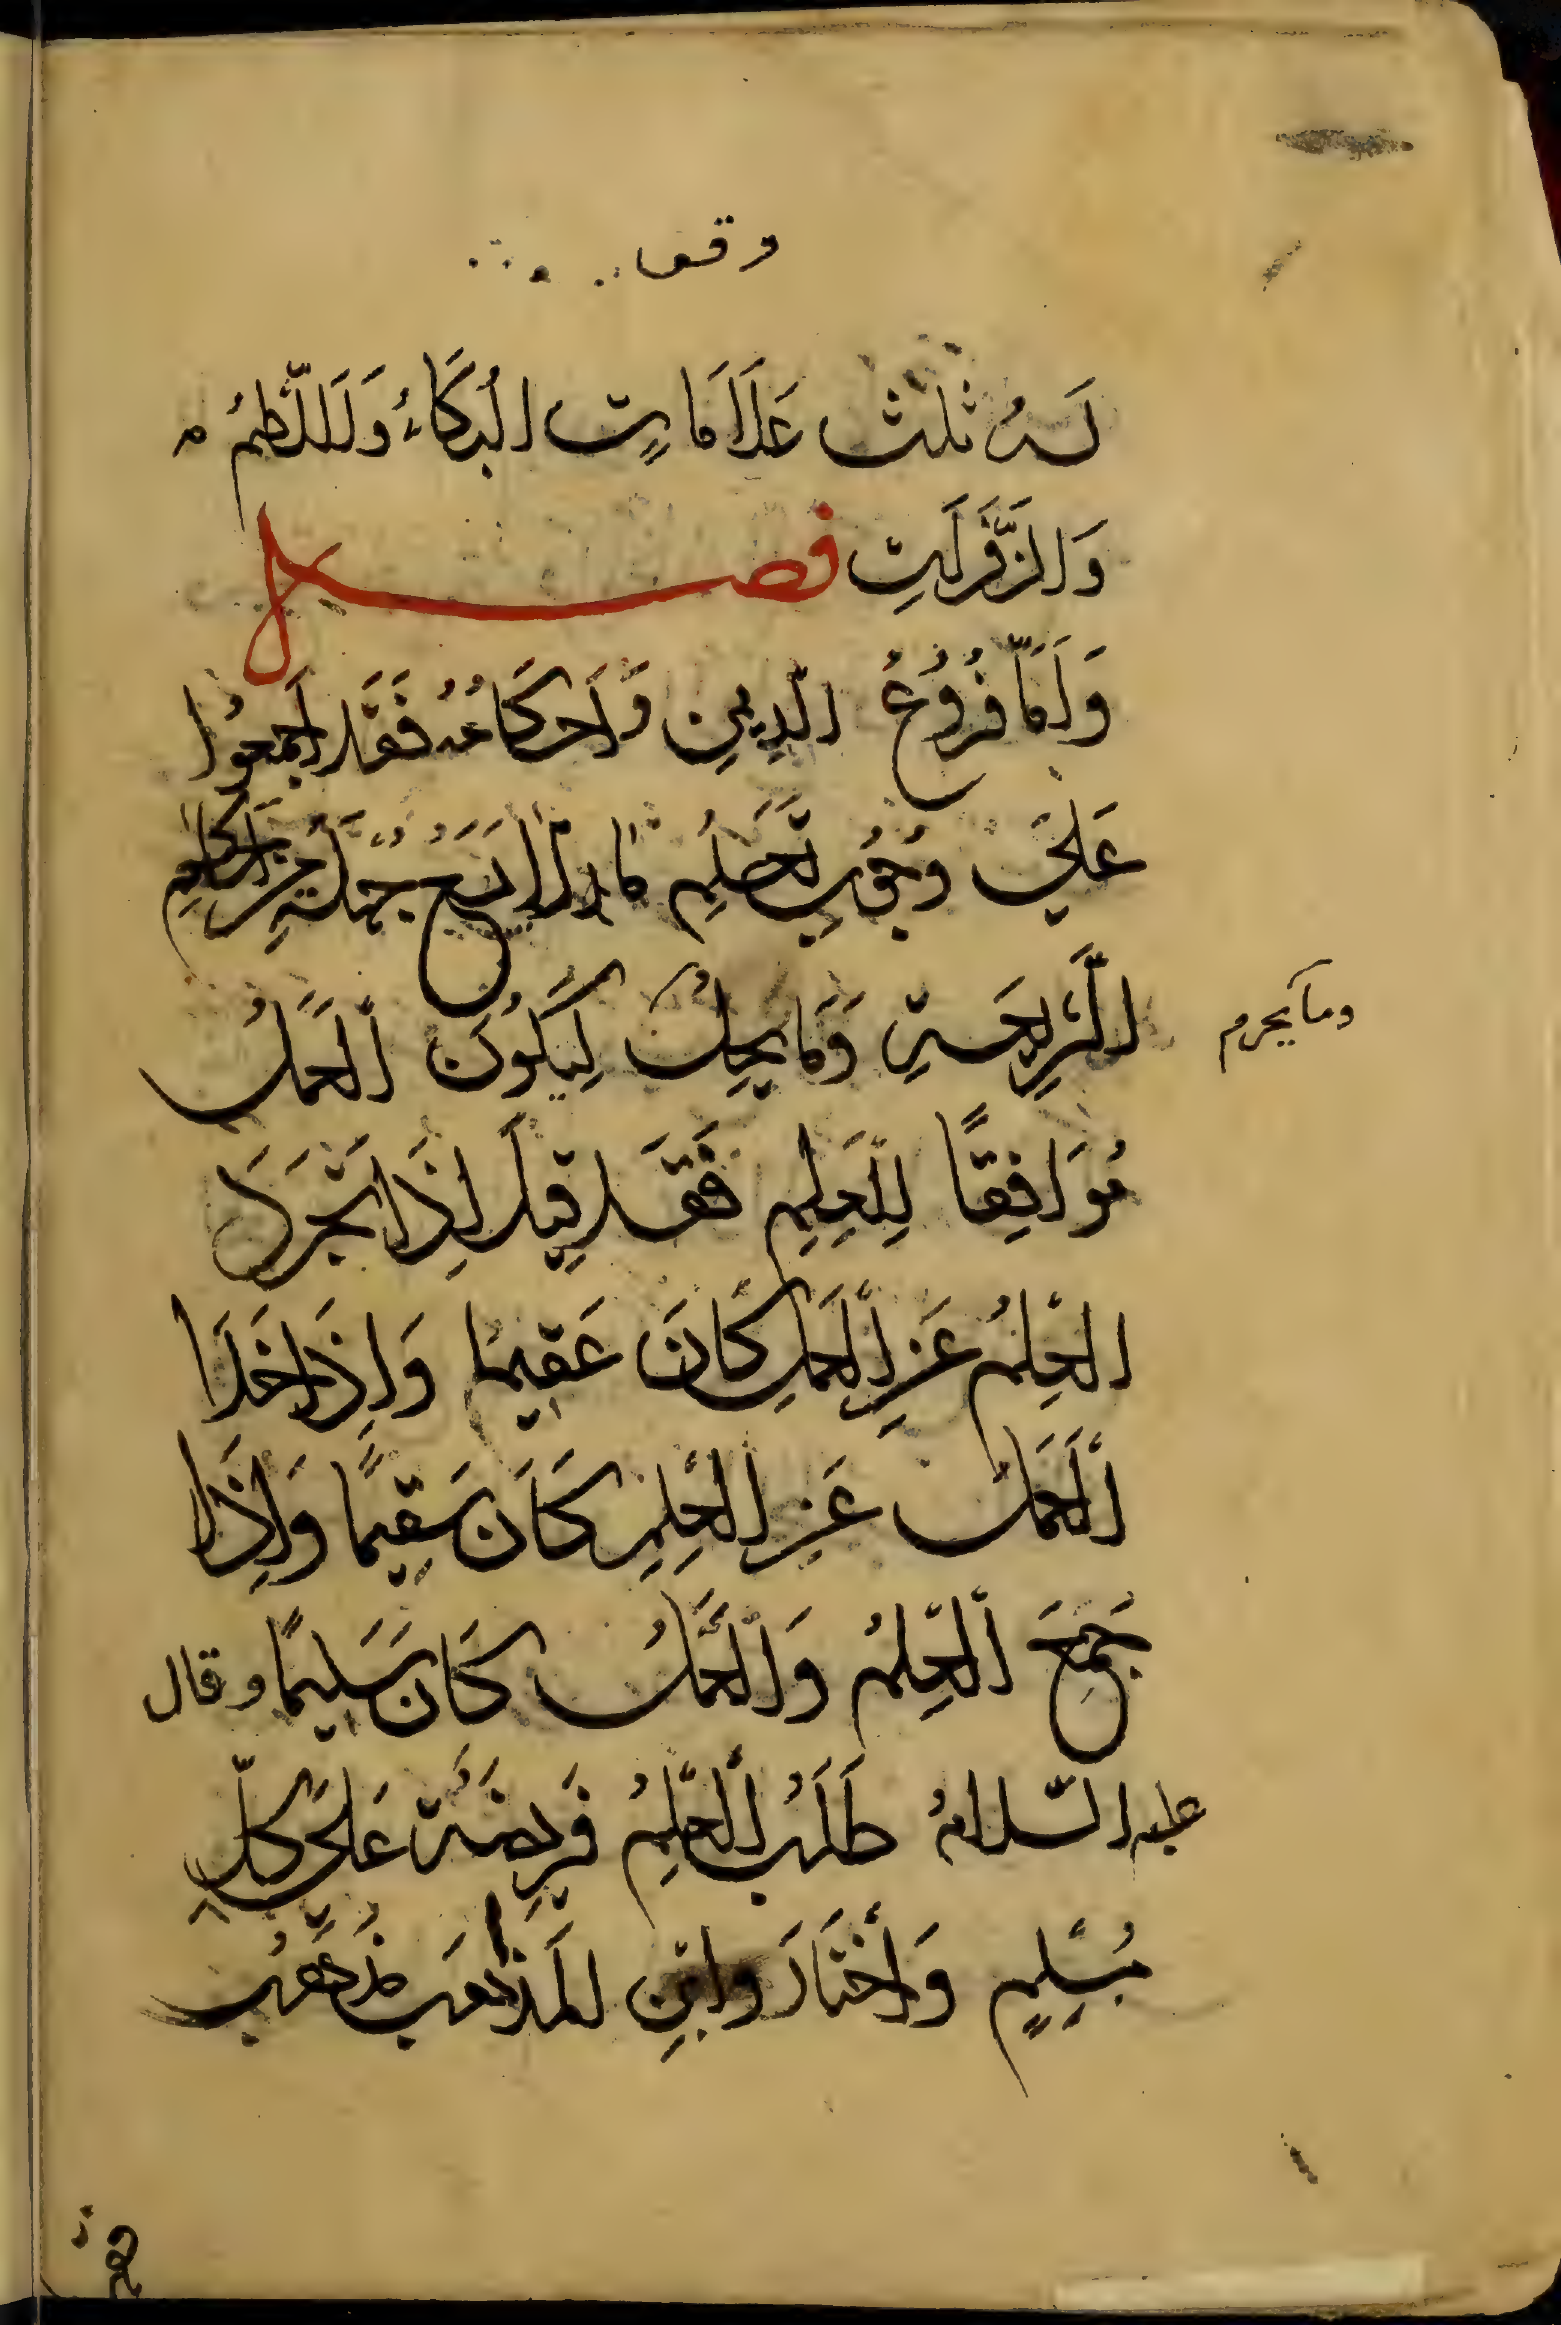 وقف
لَه ثلث عَلَامَاتٍ البُكَاءُ وَاللَّطمُ
وَالزَّفَرَاتِ فصل
وَاَمَّا فُرُوعُ الدِينِ وَاَحكَامُه فَقَد اَجمَعُوا
عَلىَ وُجُوبِ تَعَلُمِ مَا لَا يَسَعُ جَهلهِ مِن اَحكامِ
الشَّرِيعَةِ وَمَا يَحِلُ لِيَكُونَ اْلعَمَلُ
وما يحرم
مُوَافِقًا لِلعِلِمِ فَقَد قِيلَ اِذَا تَجَرَدَ
العِلمُ عَنِ اْلعَمَلِ كَانَ عَقِيمًا وَاِذَا خَلَا
اْلعَمَلُ عَنِ العِلمِ كَانَ سَقِيمًا وَاِذَا
جَمَعَ اْلعِلمُ وَالعَمَلُ كَانَ سَلِيمًا وقال
عليه السّلامُ طَلَبُ اْلعِلمِ فَرِيضَة عَلىَ كلِّ
مُسْلِمٍ وَاَخْتَارَوا مِن المَذاهَب مَذهَب